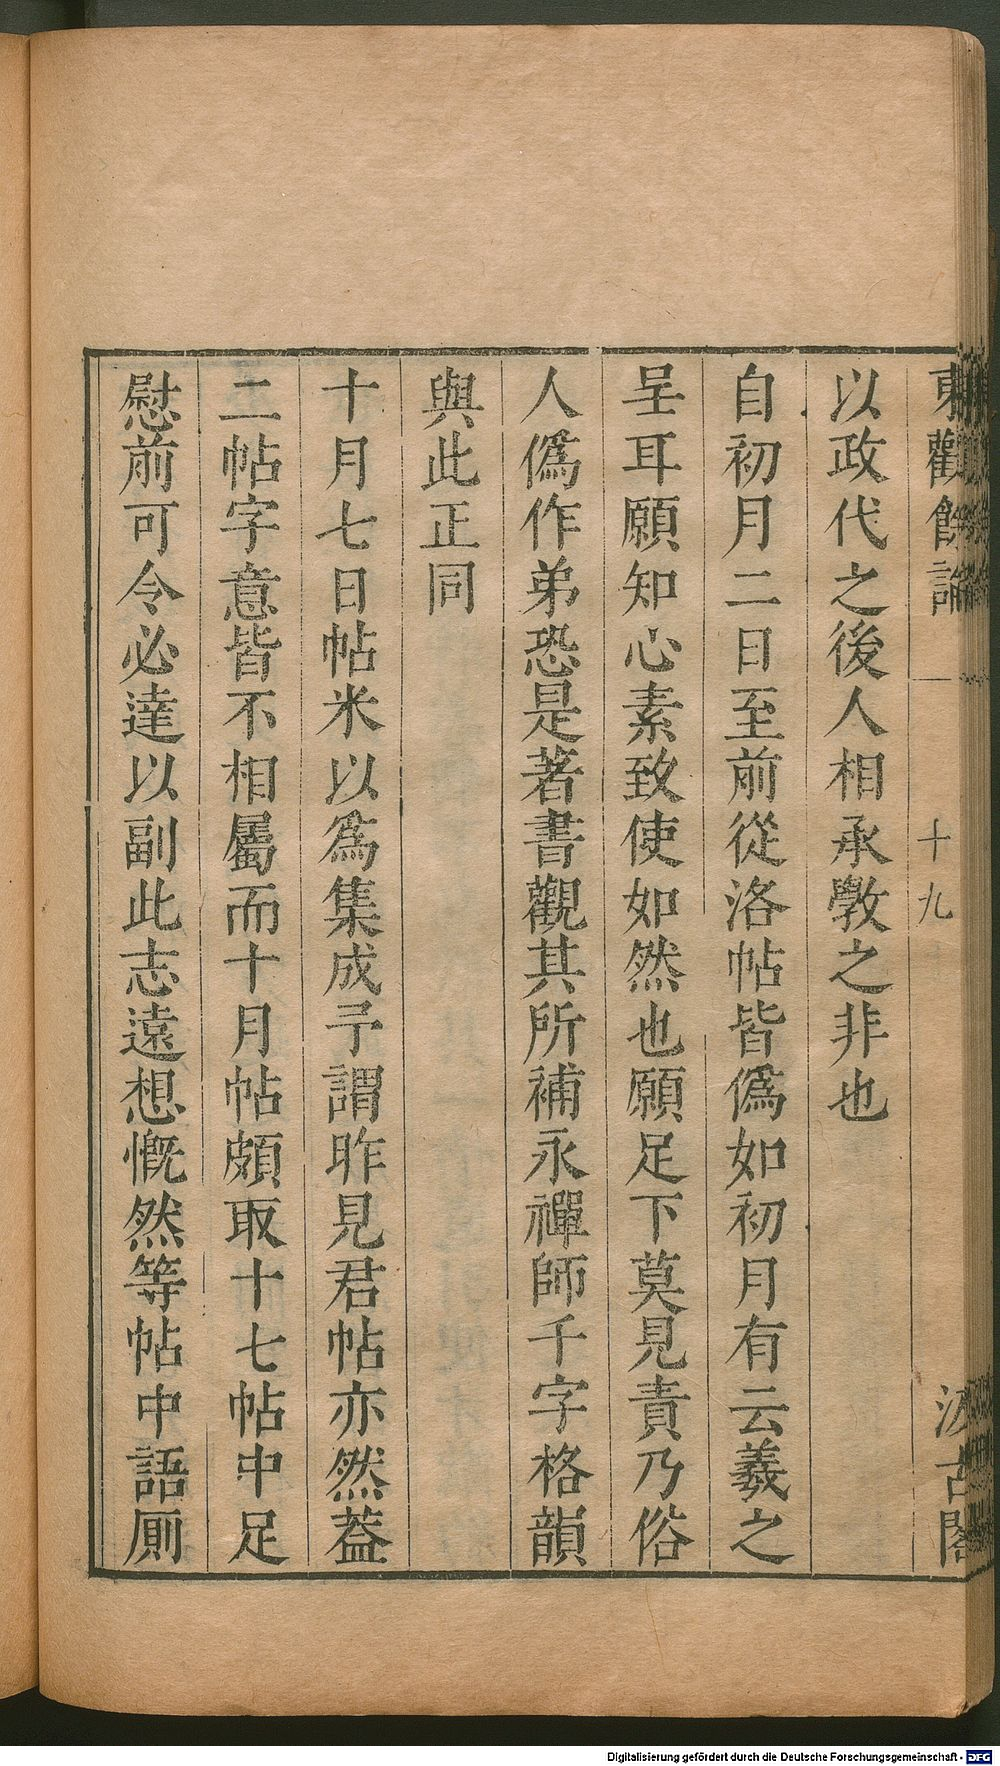 東觀餘論
十九
汲古閣
以政代之後人相承斆之非也
自初月二日至前從洛帖皆僞如初月有云羲之
呈耳願知心素致使如然也願足下莫見責乃俗
人僞作弟恐是著書觀其所補永禪師千字格韻
與此正同
十月七日帖米以爲集成予謂昨見君帖亦然葢
二帖字意皆不相屬而十月帖頗取十七帖中足
慰前可令必達以副此志遠想慨然等帖中語厠
Digitalisierung gefördert durch die Deutsche Forschungsgemeinschaft - DFG